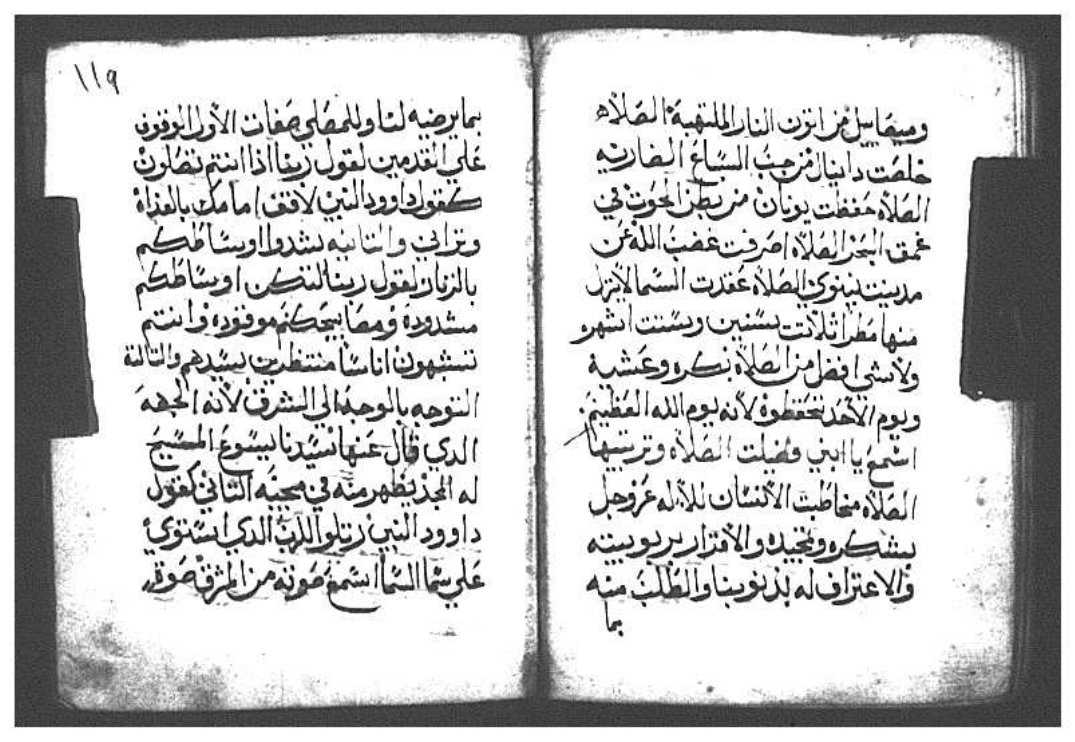 وميصاىل من اتون النار الملتهبة الصلاه
خلصت دانيال من جب السباع الضاريه
الصلاه حفظت يونان من بطن الحوت في
عمق البحر الصلاه اصرفت غضب الله عن
مدينت نينوي الصلاه عقدت السما لا ينزل
منها مطر ثلاثت سنين وستت اشهر
ولا شي افضل من الصلاه بكره وعشية
ويوم الاحد تحفظوه لانه يوم الله العظيم
اسمع يا ابني فضيلت الصلاه وترتيبها
الصلاه مخاطبت الانسان للاله عز وجل
بشكره وتمجيده والاقرار بربوبيته
والاعتراف له بذنوبنا والطلب منه
بما
١١٩
بما يرضيه لنا وللمصلي صفات الاول الوقوف
علي القدمين لقول ربنا اذا انتم تصلون
كقول داوود النبي لاقف امامك بالغداة
وتراني والثانيه تشدوا اوساطكم
بالزنار لقول ربنا لتكن اوساطكم
مشدودة ومصابيحكم موقوده وانتم
تتشبهون اناسا منتظرين سيدهم والثالثة
التوجه بالوجه الي الشرق لانه الجهه
الدي قال عنها سيدنا يسوع المسيح
له المجد يظهر منه في مجيئه الثاني كقول
داوود النبي رتلوا للرب الدي استوي
علي سما السما اسمع صوته من المشرق صوت